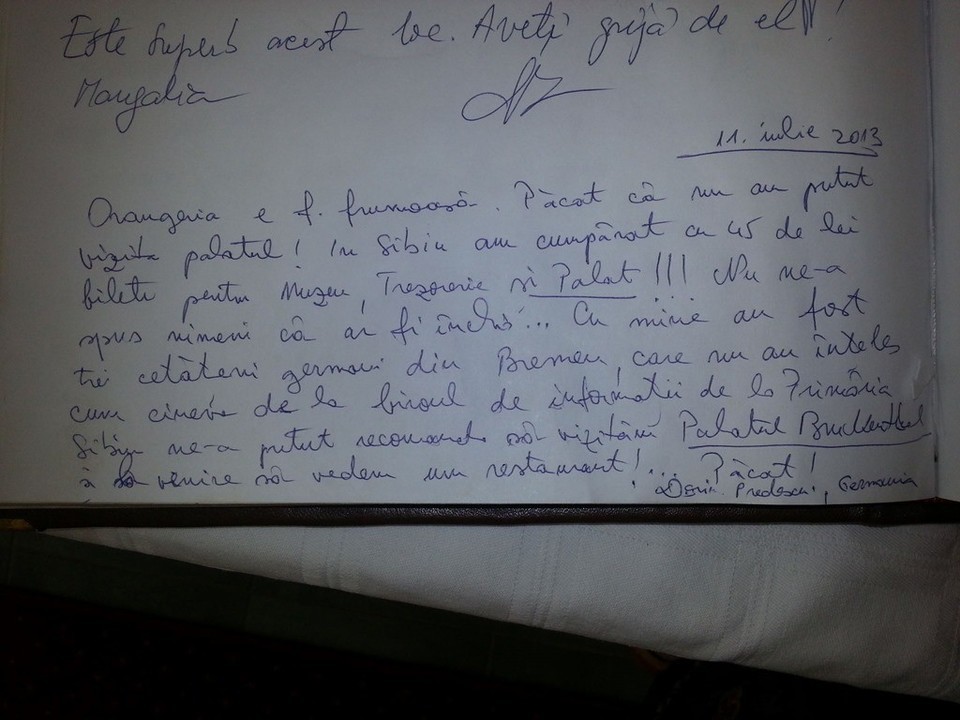 Este superb acest loc. Aveți grijă de el!
Mangalia
11. iulie 2013
Orangeria e f. frumoasă. Păcat că nu am putut
vizita palatul! In Sibiu am cumpărat cu 45 de lei
bilete pentru Muzeu, Trezorerie si Palat !!! Nu ne-a
spus nimeni că ar fi închis... Cu mine au fost
trei cetăteni germani din Bremen, care nu au înteles
cum cineva de la biroul de informatii de la Primăria
Sibiu ne-a putut recomanda să vizităm Palatul Bruckenthal
venire să vedem un restaurant!... Păcat!
Predescu, Germania